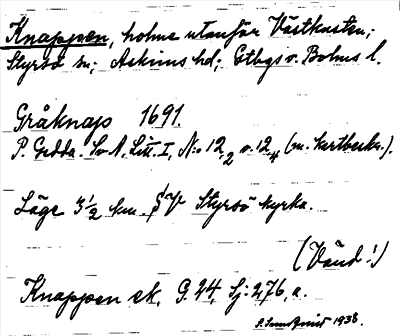 Knappen, holme utanför Västkusten;
Styrsö sn; Askims hd; Gtbgs o. Bohus l.
Gråknap 1691.
P. Gedda. Sv A, Litt. I, N:o 12,2 o. 12,4 (m. kartbeskr.).
Läge 3 1/2 km. Styrsö kyrka.
(Vänd!)
Knappen ek. G. 24, Sj: 276, a.
1938